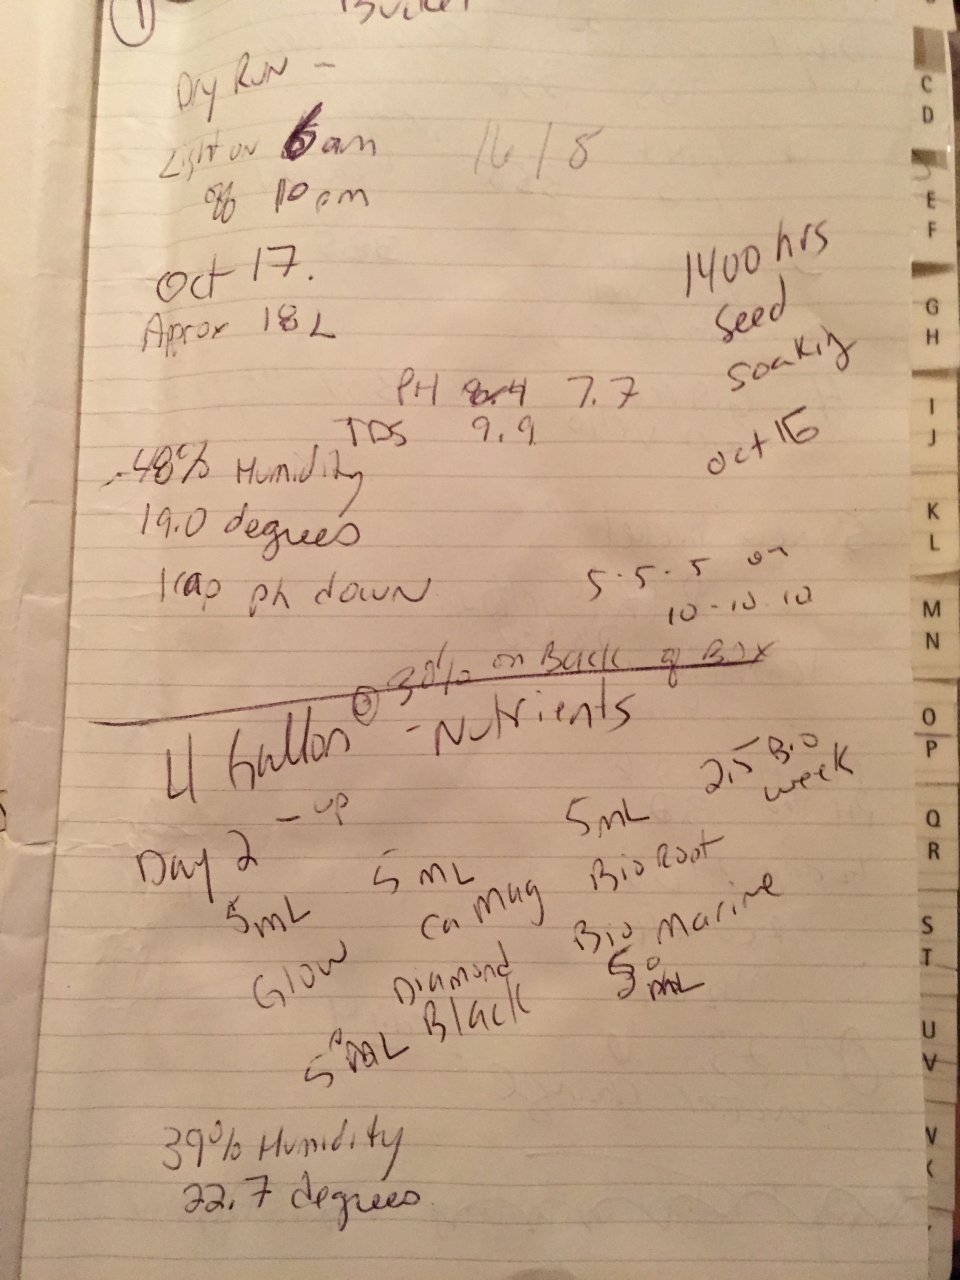 1
Bucket
Dry Run -
Light on 6 am
off 10 pm
16/8
Oct 17.
Approx 18 L
1400 hrs
Seed
soaking
oct 16
PH 8.4 7.7
TDS 9.9
48% Humidity
19.0 degrees
1 cap ph down
5.5.5 or
10-10 10
30% on Back of Box
4 Gallon - Nutrients
Day 2 - up
5 mL
Glow
5 mL
Ca Mag
5 mL
Bio Root
2.5 Bio
week
Diamond
Black
Bio Marine
39% Humidity
22.7 degrees
C
D
E
F
G
H
I
J
K
L
M
N
O
P
Q
R
S
T
U
V